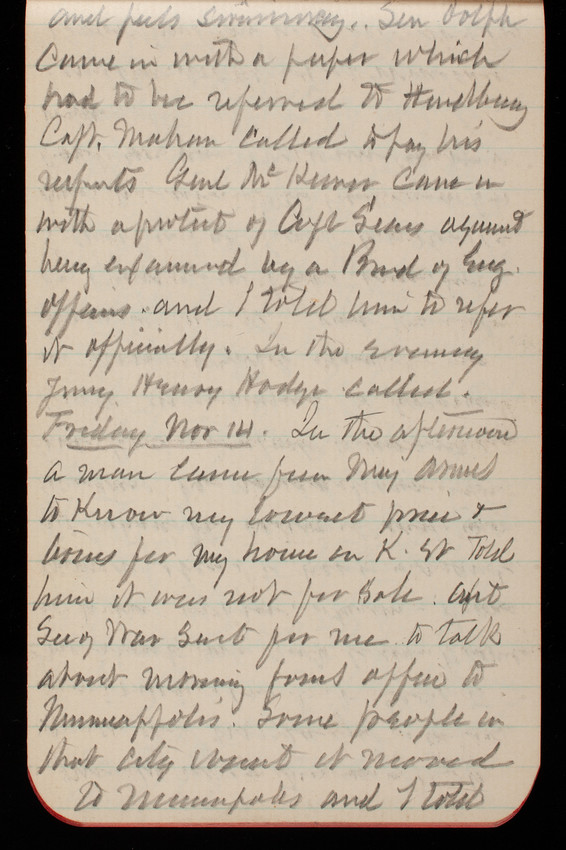 and feels swimming. Sen Dolph
Came in with a paper which
had to be referred to
Capt. Mahan called to pay his
respects Genl McKeever came in
with a protest of Capt Sears against
being examined by a Board of Eng.
officers. and I told him to refer
it officially. In the evening
Henry Hodge called.
Friday Nov 14. In the afternoon
a man came from
to Know my lowest price &
terms for my home on K. St Told
him it was not for Sale. Asst
Secy War Sent for me to talk
about moving office to
Minneapolis. Some people in
that city want it moved
to Minneapolis and I told